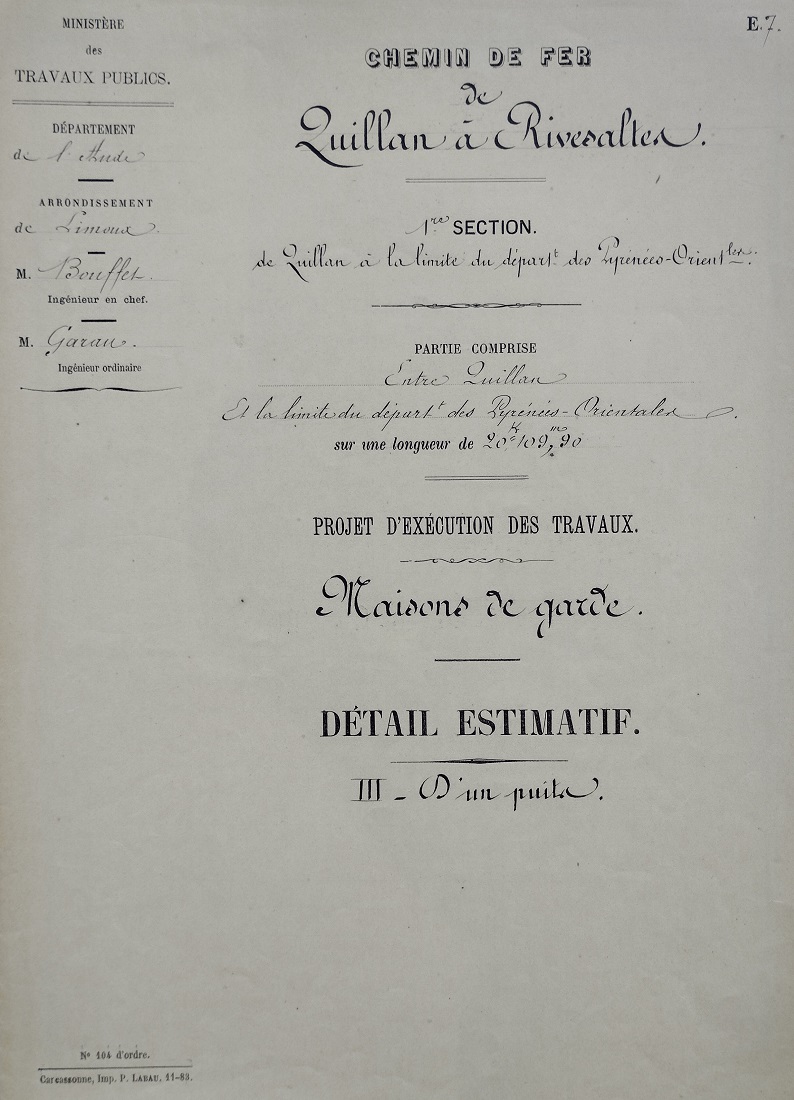 MINISTÈRE
des
TRAVAUX PUBLICS.
DÉPARTEMENT
de l'Aude
ARRONDISSEMENT
de Limoux.
M. Bouffet.
Ingénieur en chef.
M. Garau.
Ingénieur ordinaire
E. 7.
CHEMIN DE FER
de
Quillan à Rivesaltes.
1re SECTION.
de Quillan à la limite du départt des Pyrénées-Orientles.
PARTIE COMPRISE
Entre Quillan
Et la limite du départt des Pyrénées-Orientales.
sur une longueur de 20k109m,90
PROJET D'EXÉCUTION DES TRAVAUX.
Maisons de garde.
DÉTAIL ESTIMATIF.
III - D'un puits.
No 104 d'ordre.
Carcassonne, Imp. P. LABAU. 11-83.